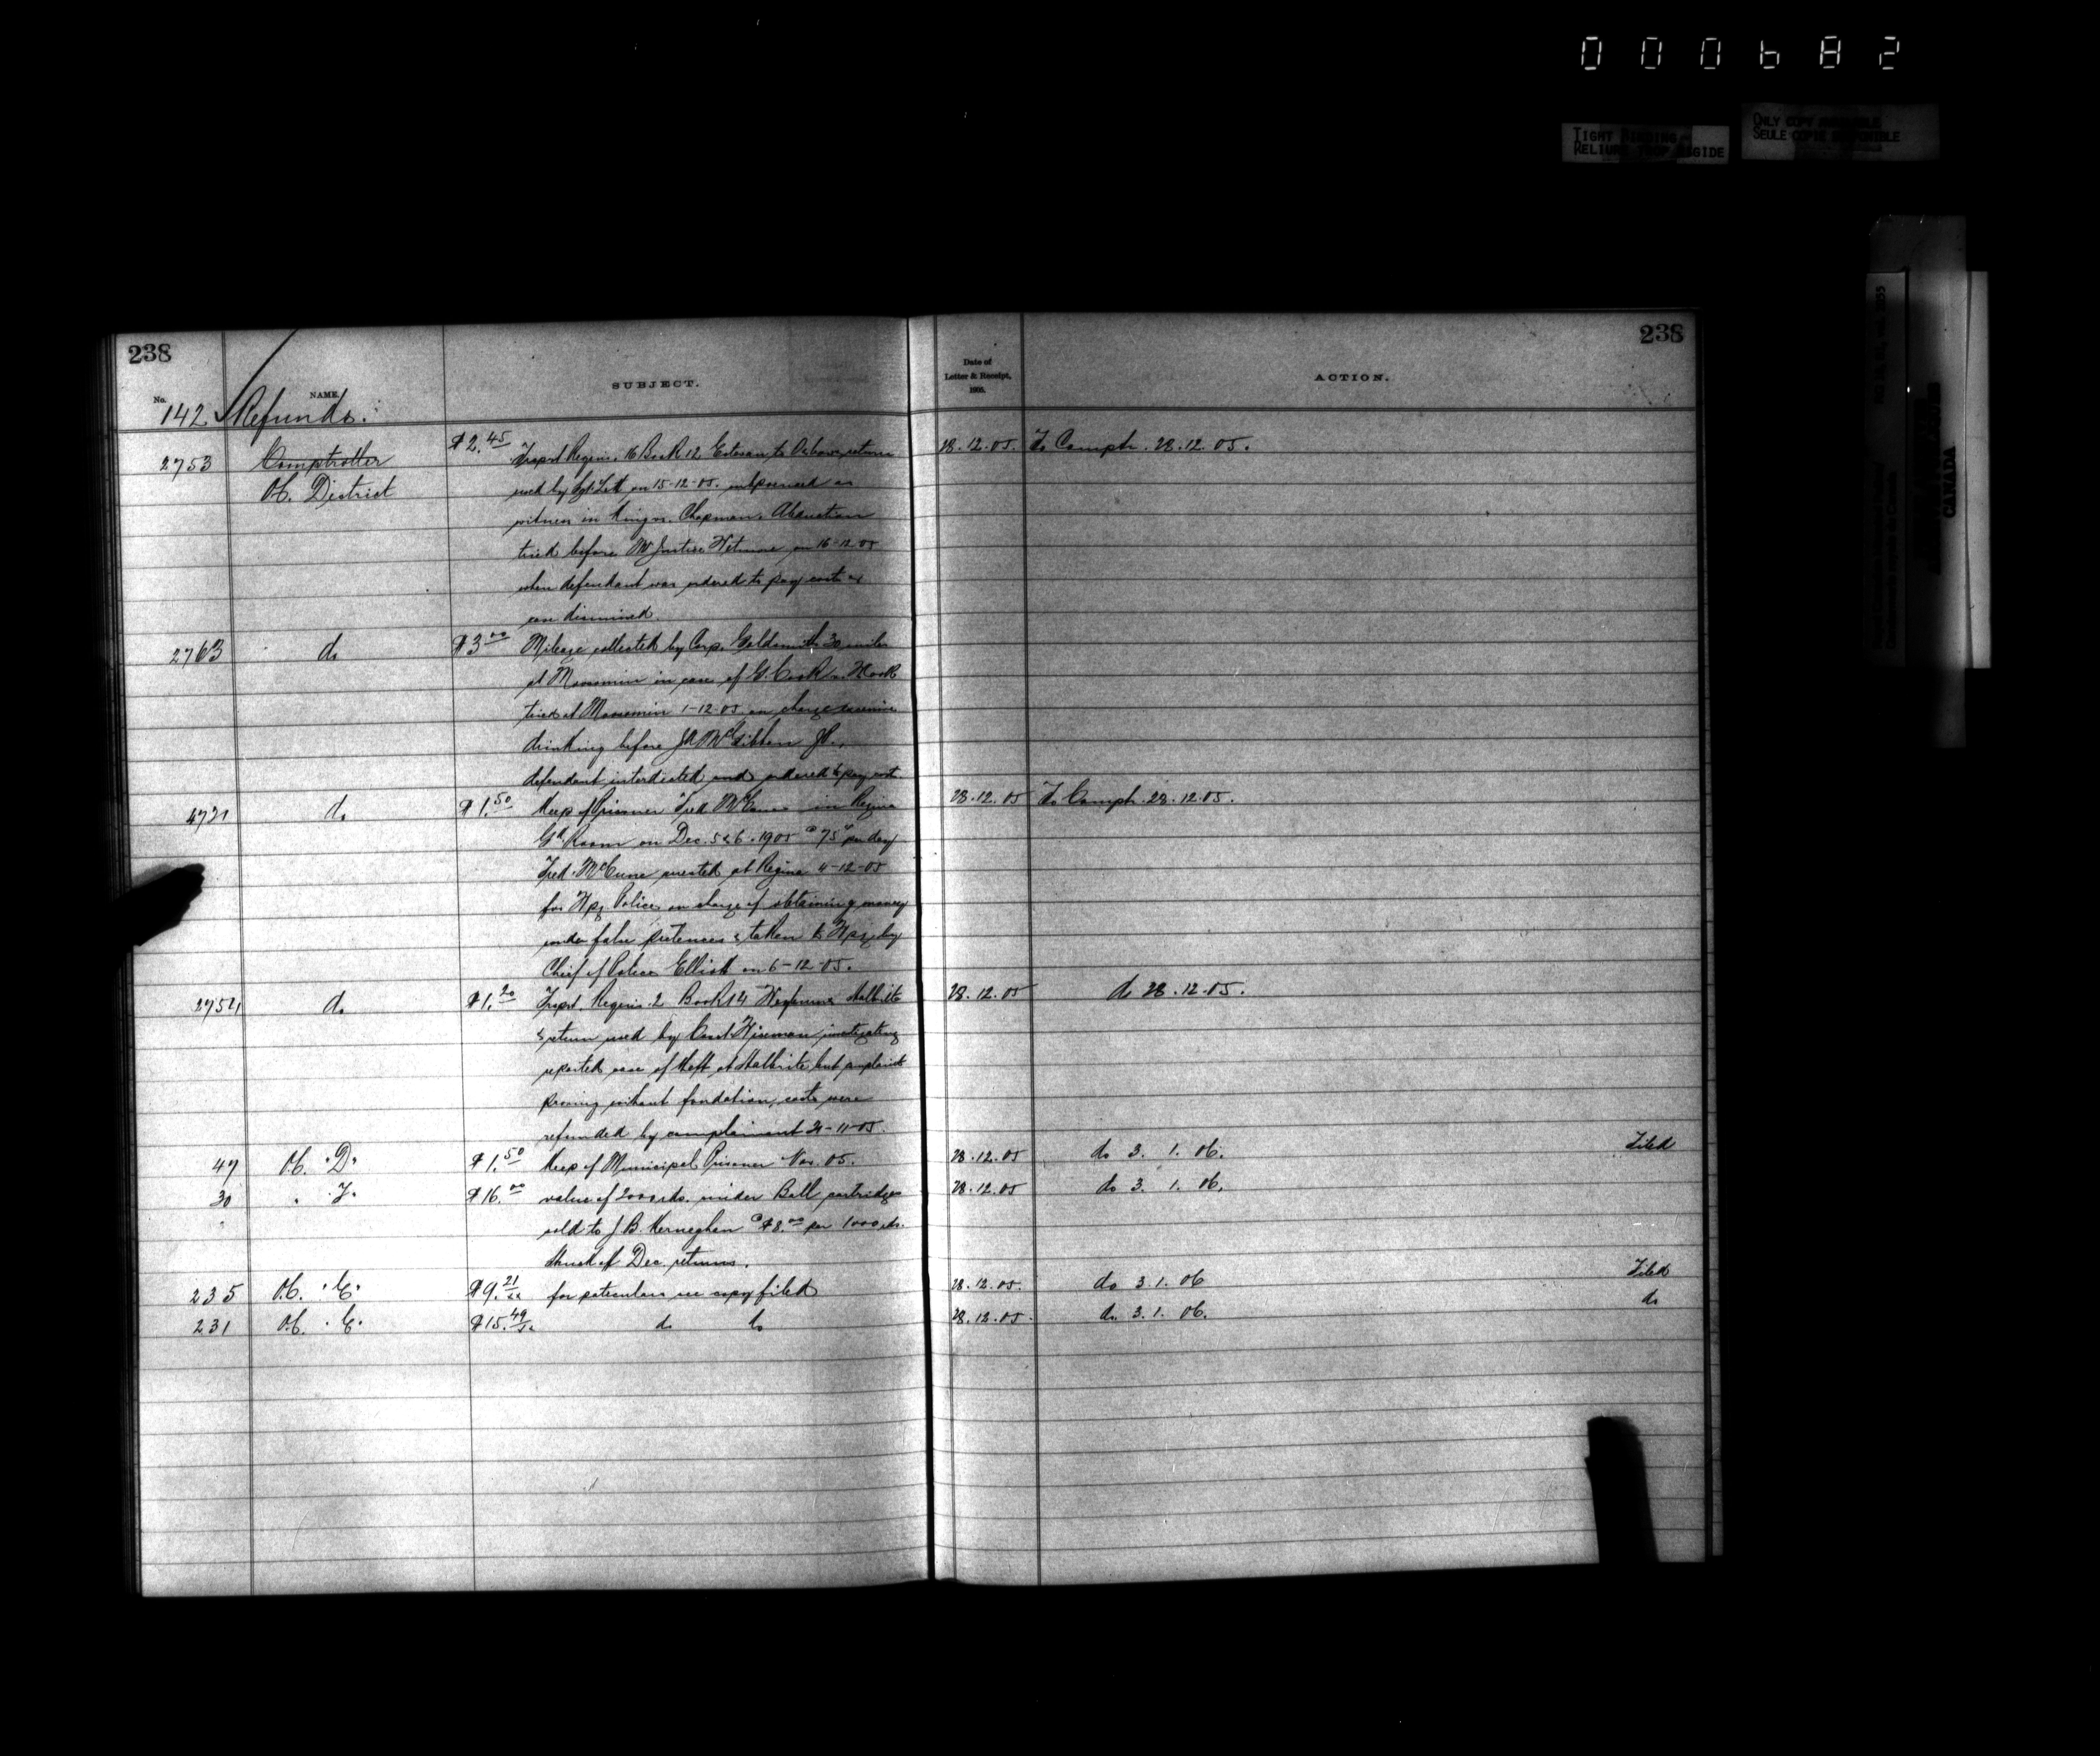 000682
TIGHT BINDING
RELIURE TROP RIGIDE
ONLY COPY AVAILABLE
SEULE COPIE DISPONIBLE
CANADA
238
238
No. NAME. SUBJECT. Date of Letter & Receipt, 1905. ACTION.
142 Refunds.
2753 Comptroller $2.45 Trspt Requis. 16 Book 12 Estevan to Oxbow return 28.12.05. To Compt. 28.12.05.
Of. District used by Sgt Lett on 15-12-05. subpoenaed as
witness in King vs. Chapman. Abduction
tried before Mr Justice Wetmore on 16-12-05
when defendant was ordered to pay costs &
case dismissed.
2763 do $3.00 Mileage collected by Corp. Goldsmith 30 miles
at Moosomin in case of G. Cook vs.
tried at Moosomin 1-12-05 on charge excessive
drinking before J.A. McGibbon J.P.,
defendant interdicted and ordered to pay cost.
4721 do $1.50 Keep of Prisoner Fred McCune in Regina 28.12.05 To Compt. 28.12.05.
Gd. Room on Dec. 5 & 6. 1905 @ 75c per day
Fred McCune arrested at Regina 4-12-05
for Wpg Police on charge of obtaining money
under false pretences & taken to Wpg by
Chief of Police Elliott on 6-12-05.
2754 do $1.20 Trspt. Requis. 2 Book 14 Halbrite 28.12.05 do 28.12.05.
& return used by Const. Wiseman investigating
reported case of theft at Halbrite but complaint
proving without fondation, costs were
refunded by complainant 21-11-05.
49 Of. "D" $1.50 Keep of Municipal Prisoner Nov. 05. 28.12.05 do 3. 1. 06. Filed
30 " F. $16.00 value of 2000 rds. Snider Ball cartridges 28.12.05 do 3. 1. 06.
sold to J.B. Kerneghan @ $8.00 per 1000 rds.
Struck of Dec. returns.
235 Of. "E" $9.21 for paticulars see copy filed 28.12.05. do 3.1.06 Filed
231 Of. "E" $15.49 do do 28.12.05. do. 3.1.06. do